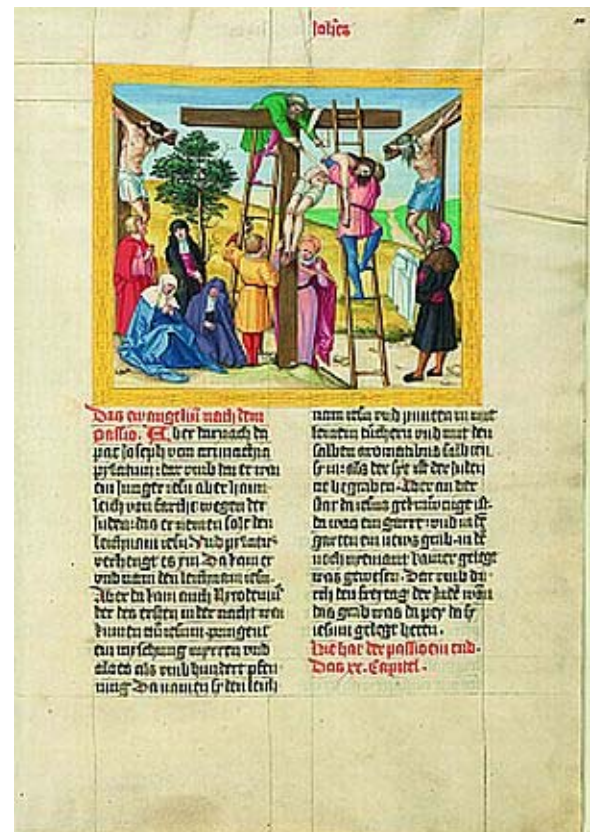 Joh̄es
Das ewangeliū nach dem
passio. Aber darnach da
pat Joseph von arimathia
pylatum: dar umb daz er was
ein Junger iesu aber haim-
leich von farcht wegen der
Juden: das er nemen solt den
leichnam iesu. Vnd pylatus
verhengt es ym. Da kam er
vnd nam den leichnam iesu.
Aber da kam auch Nycodemus
der des ersten in der nacht was
kumen
ein myschung mirren vnd
aloes als vmb hundert pfen-
ning Da namen sy den leich
nam iesu vnd punten in mit
leinen tüchern vnd mit den
salben aromatibus salbten
sy in: als der syt ist der Juden
ze begraben. Aber an der
stat da iesus gekrewczigt ist.
da was ein garten: vnd in dē
garten ein newes grab. in dē
noch nyemant kainer gelegt
was gewesen. Dar vmb du-
rch den freytag der Judē wan
das grab was da pey da sy
iesum gelegt heten.
Hie hat der passio ein end.
Das xx. Capitel.